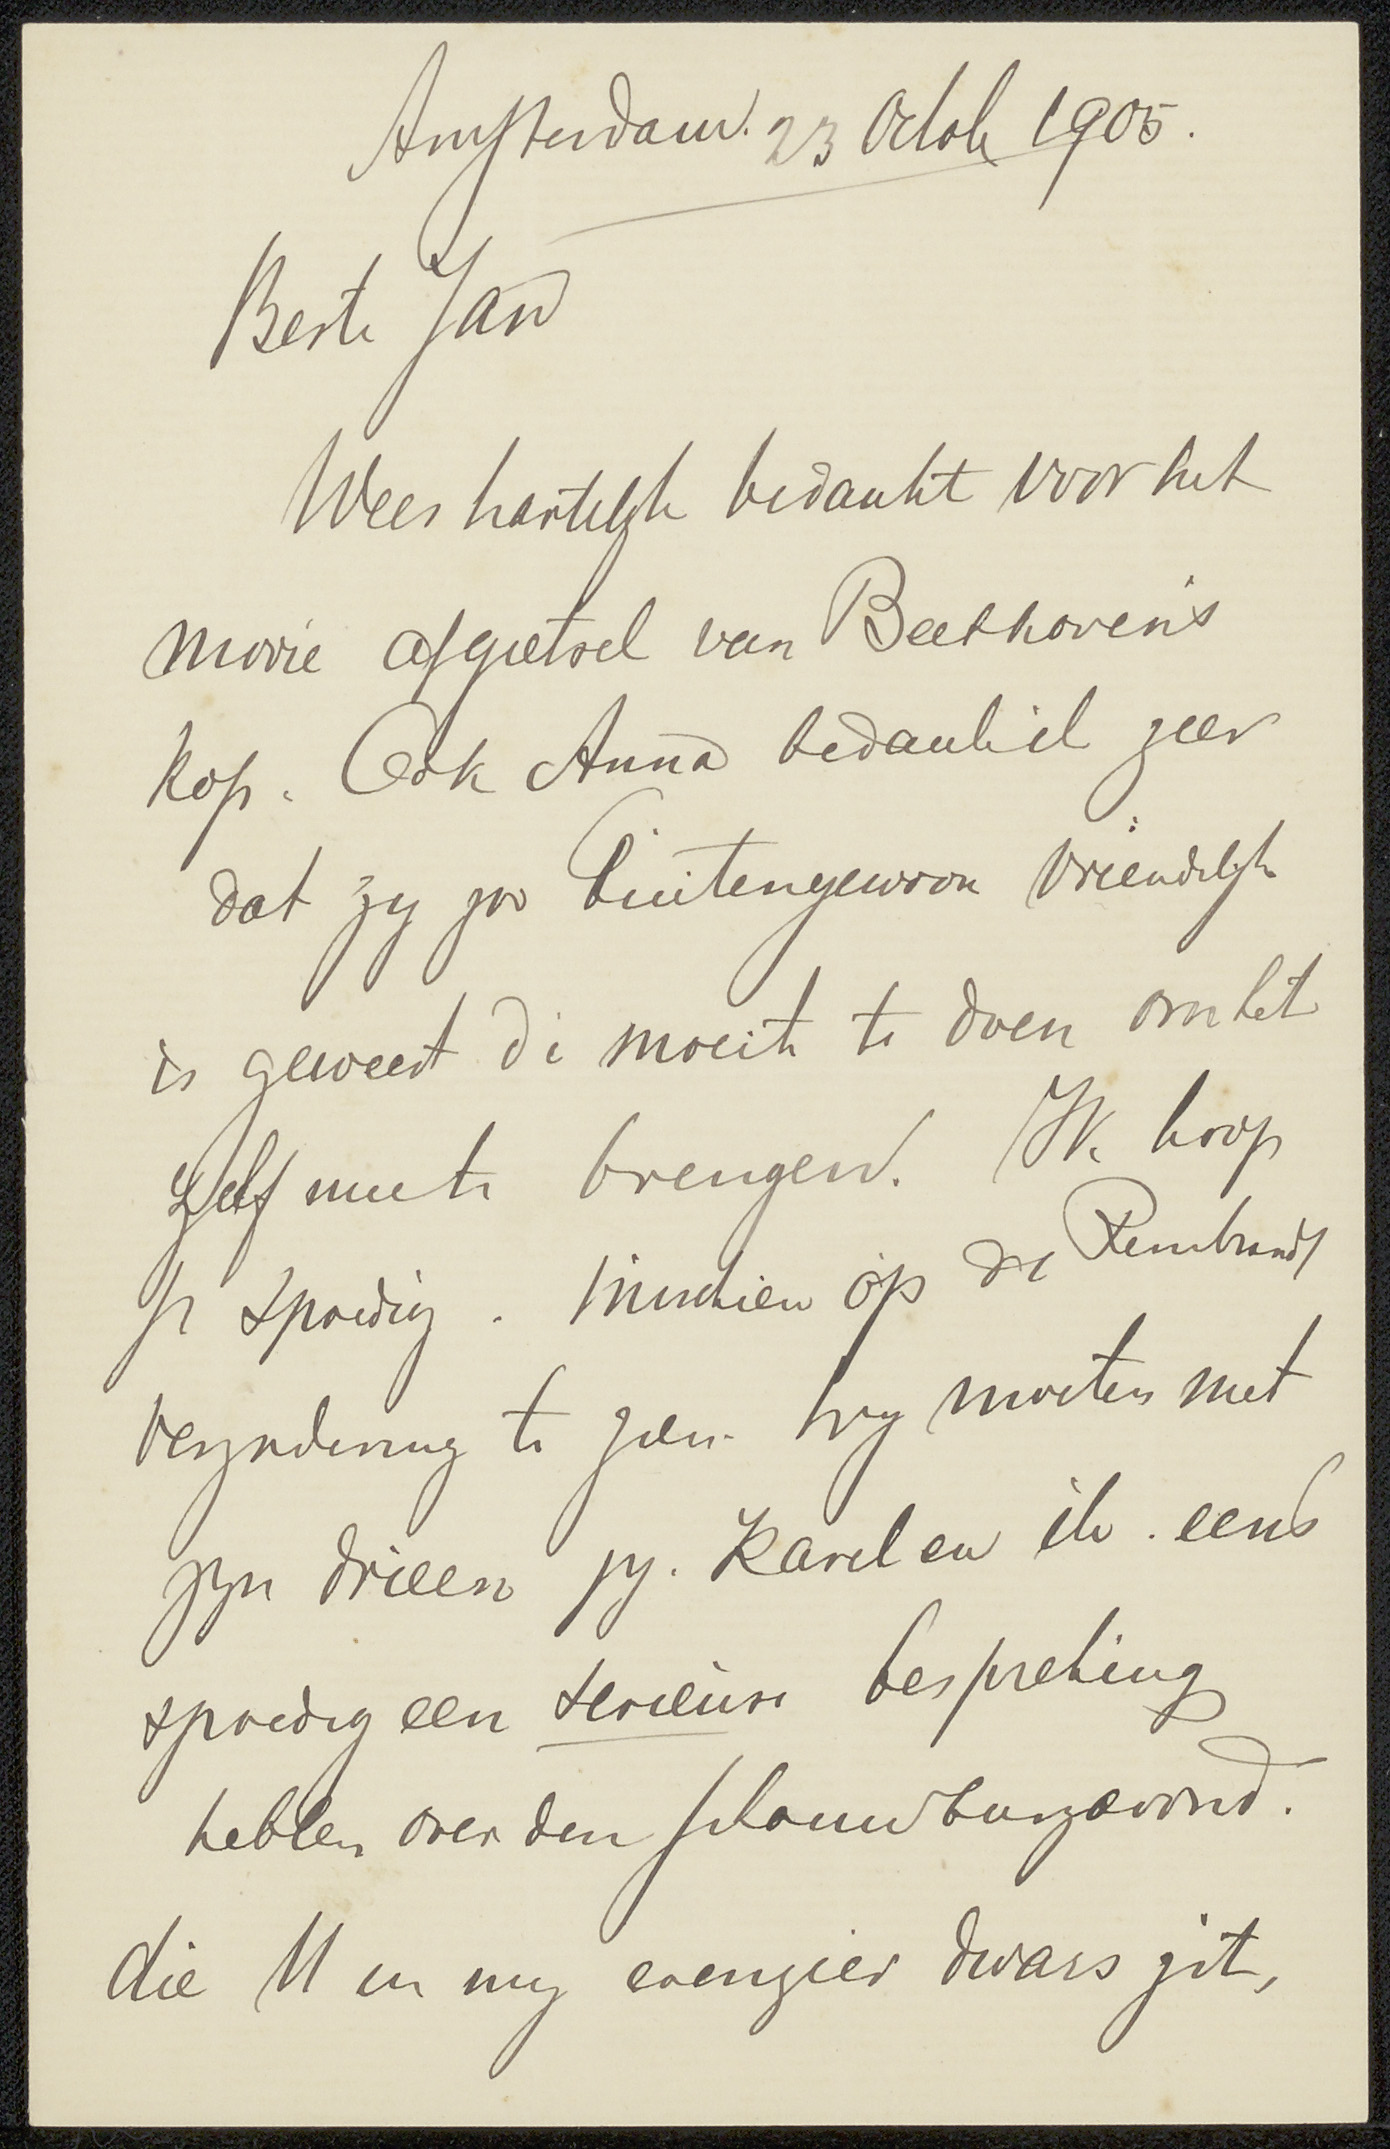 Amsterdam. 23 Octob 1905.
Beste Jan
Wees hartelijk bedankt voor het
mooie afgietsel van Beethoven's
kop. Ook Anna bedank ik zeer
dat zij zoo buitengewoon vriendelijk
is geweest de moeite te doen om het
zelf mee te brengen. Ik hoop
je spoedig. misschien op de Rembrandt
vergadering te zien. Wij moeten met
zijn drieen jij. Karel en ik. eens
spoedig een serieuse bespreking
hebben over den schouwburgavond.
die U en mij evenzier dwars zit,